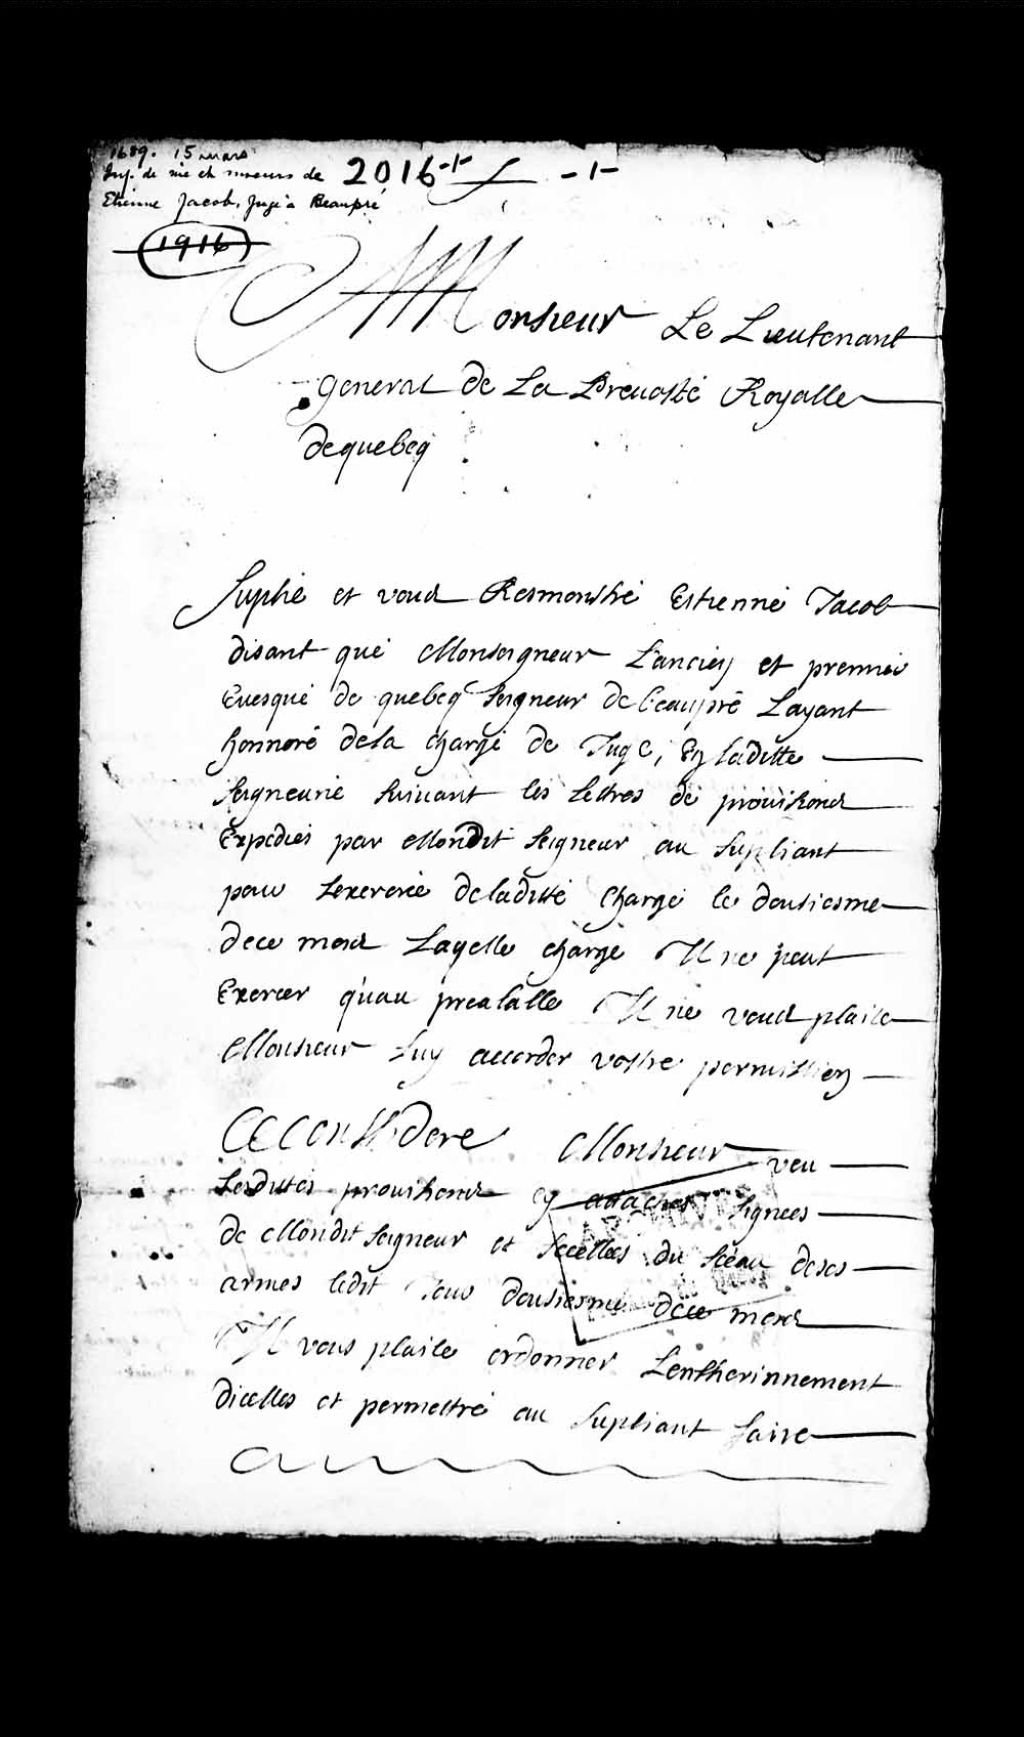 1689. 15 mars
Inf. de vie et moeurs de 2016 -1-
Etienne Jacob, Juge à Beaupré
1916
Monsieur Le Lieutenant
general de La Prevosté Royalle
de quebeq
Suplie et vous Remonstre Estienne Jacob
disant que Monseigneur L'ancien et premier
Evesque de quebeq Seigneur de beaupré Layant
honnoré dela charge de Juge, En laditte
Seigneurie suivant les lettres de provisions
Expediés par Mondit Seigneur au supliant
pour Lexercice deladitte charge le dousiesme
de ce mois Laqelle charge Il ne peut
Exercer qu'au prealable Il ne vous plaise
Monsieur Luy accorder vostre permission
Ce Considere Monsieur veu
Lesdittes provisions cy attachés signees
de Mondit Seigneur et scellees du sceau de ses
armes ledit Jour dousiesme de ce mois
Il vous plaise ordonner Lentherinnement
dicelles et permettre au supliant faire
ARCHIVES